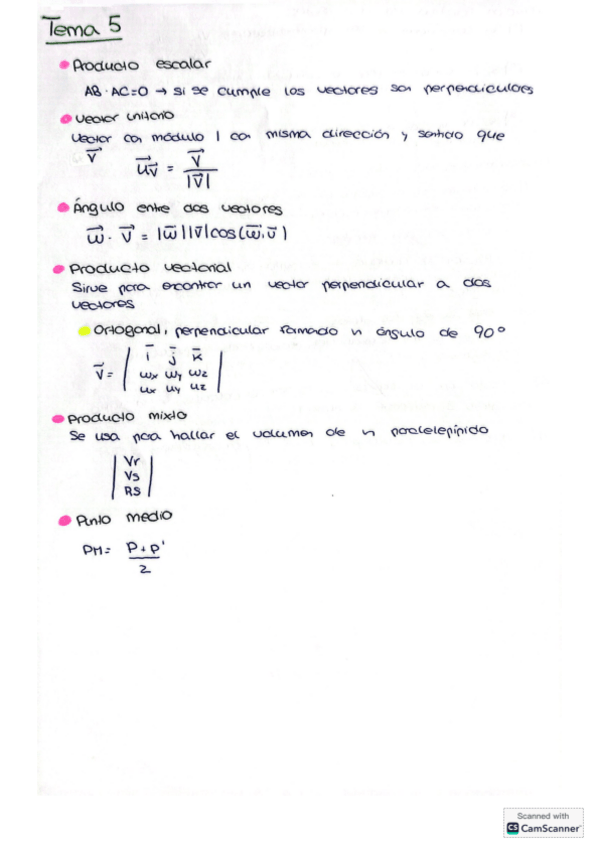 Tema 5
Producto escalar
AB · AC=0 → si se cumple los vectores son perpendiculares
Vector unitario
Vector con módulo 1 con misma dirección y sentido que
v⃗ u⃗v⃗ = v⃗ / |v⃗|
Ángulo entre dos vectores
w⃗ · v⃗ = |w⃗||v⃗|cos(w⃗,v⃗)
Producto vectorial
Sirve para encontrar un vector perpendicular a dos
vectores
Ortogonal, perpendicular formado un ángulo de 90°
i j k
v⃗ = | wx wy wz |
ux uy uz
Producto mixto
Se usa para hallar el volumen de un paralelepípido
Vr
Vs
RS
Punto medio
PM = P+P' / 2
Scanned with
CS CamScanner